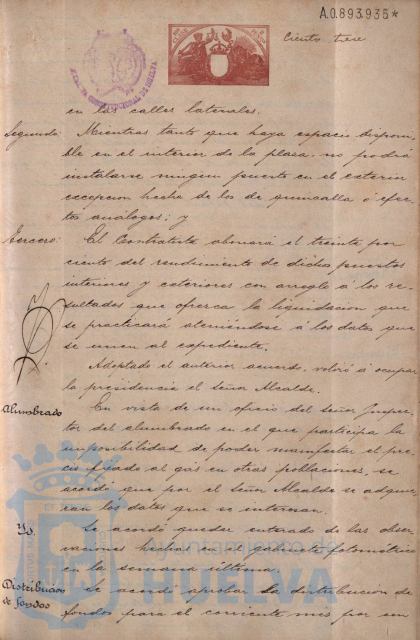 A.0.893.935*
Ciento trece
ALCALDIA CONSTITUCIONAL DE HUELVA
en las calles laterales.
Segundo: Mientras tanto que haya espacio disponi-
ble en el interior de la plaza, no podrá
instalarse ningun puesto en el exterior
excepcion hecha de los de quincalla ó efec-
tos análogos; y
Tercero: El Contratista abonará el treinta por
ciento del rendimiento de dichos puestos
interiores y exteriores con arreglo á los re-
sultados que ofrezca la liquidacion que
se practicará ateniéndose á los datos que
se unen al expediente.
Adoptado el anterior acuerdo, volvió á ocupar
la presidencia el señor Alcalde.
Alumbrado En vista de un oficio del señor Inspec-
tor del alumbrado en el que participa la
imposibilidad de poder manifestar el pre-
cio fijado al gas en otras poblaciones, se
acordó que por el señor Alcalde se adquie-
ran los datos que se interesan.
Yd. Se acordó quedar enterado de las obser-
vaciones hechas en el gabinete fotométrico
en la semana última.
Distribucion de fondos Se acordó aprobar la distribucion de
fondos para el corriente mes por un
Ayuntamiento de
HUELVA